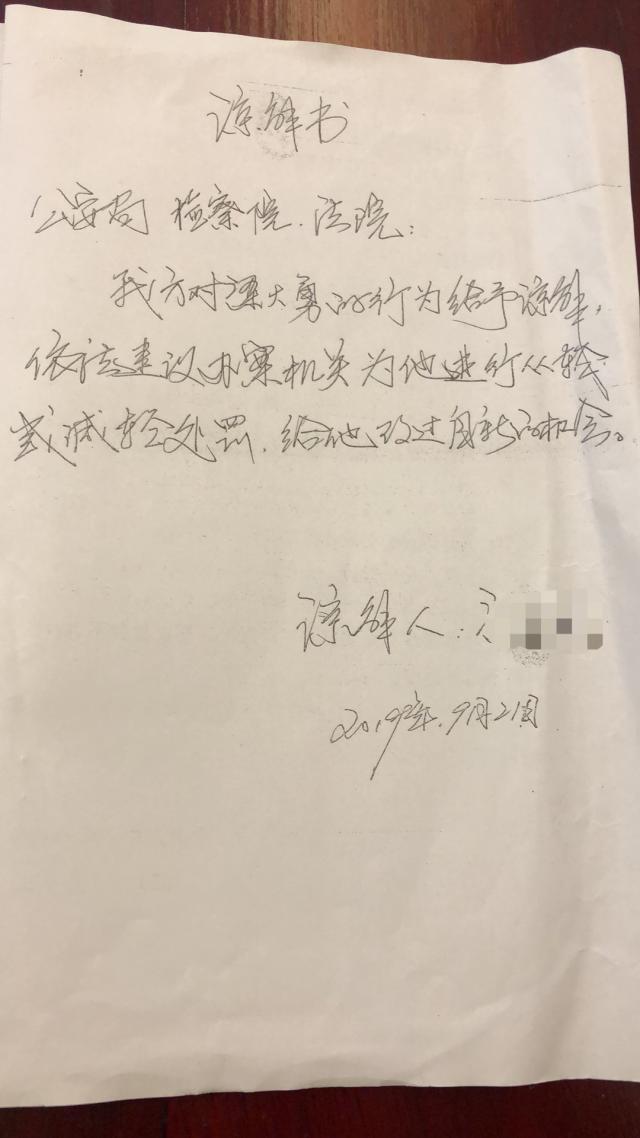 谅解书
公安局 检察院.法院:
我方对梁大勇的行为给予谅解,
依法建议办案机关为他进行从轻
或减轻处罚,给他改过自新的机会。
谅解人:
2019年.9月21日